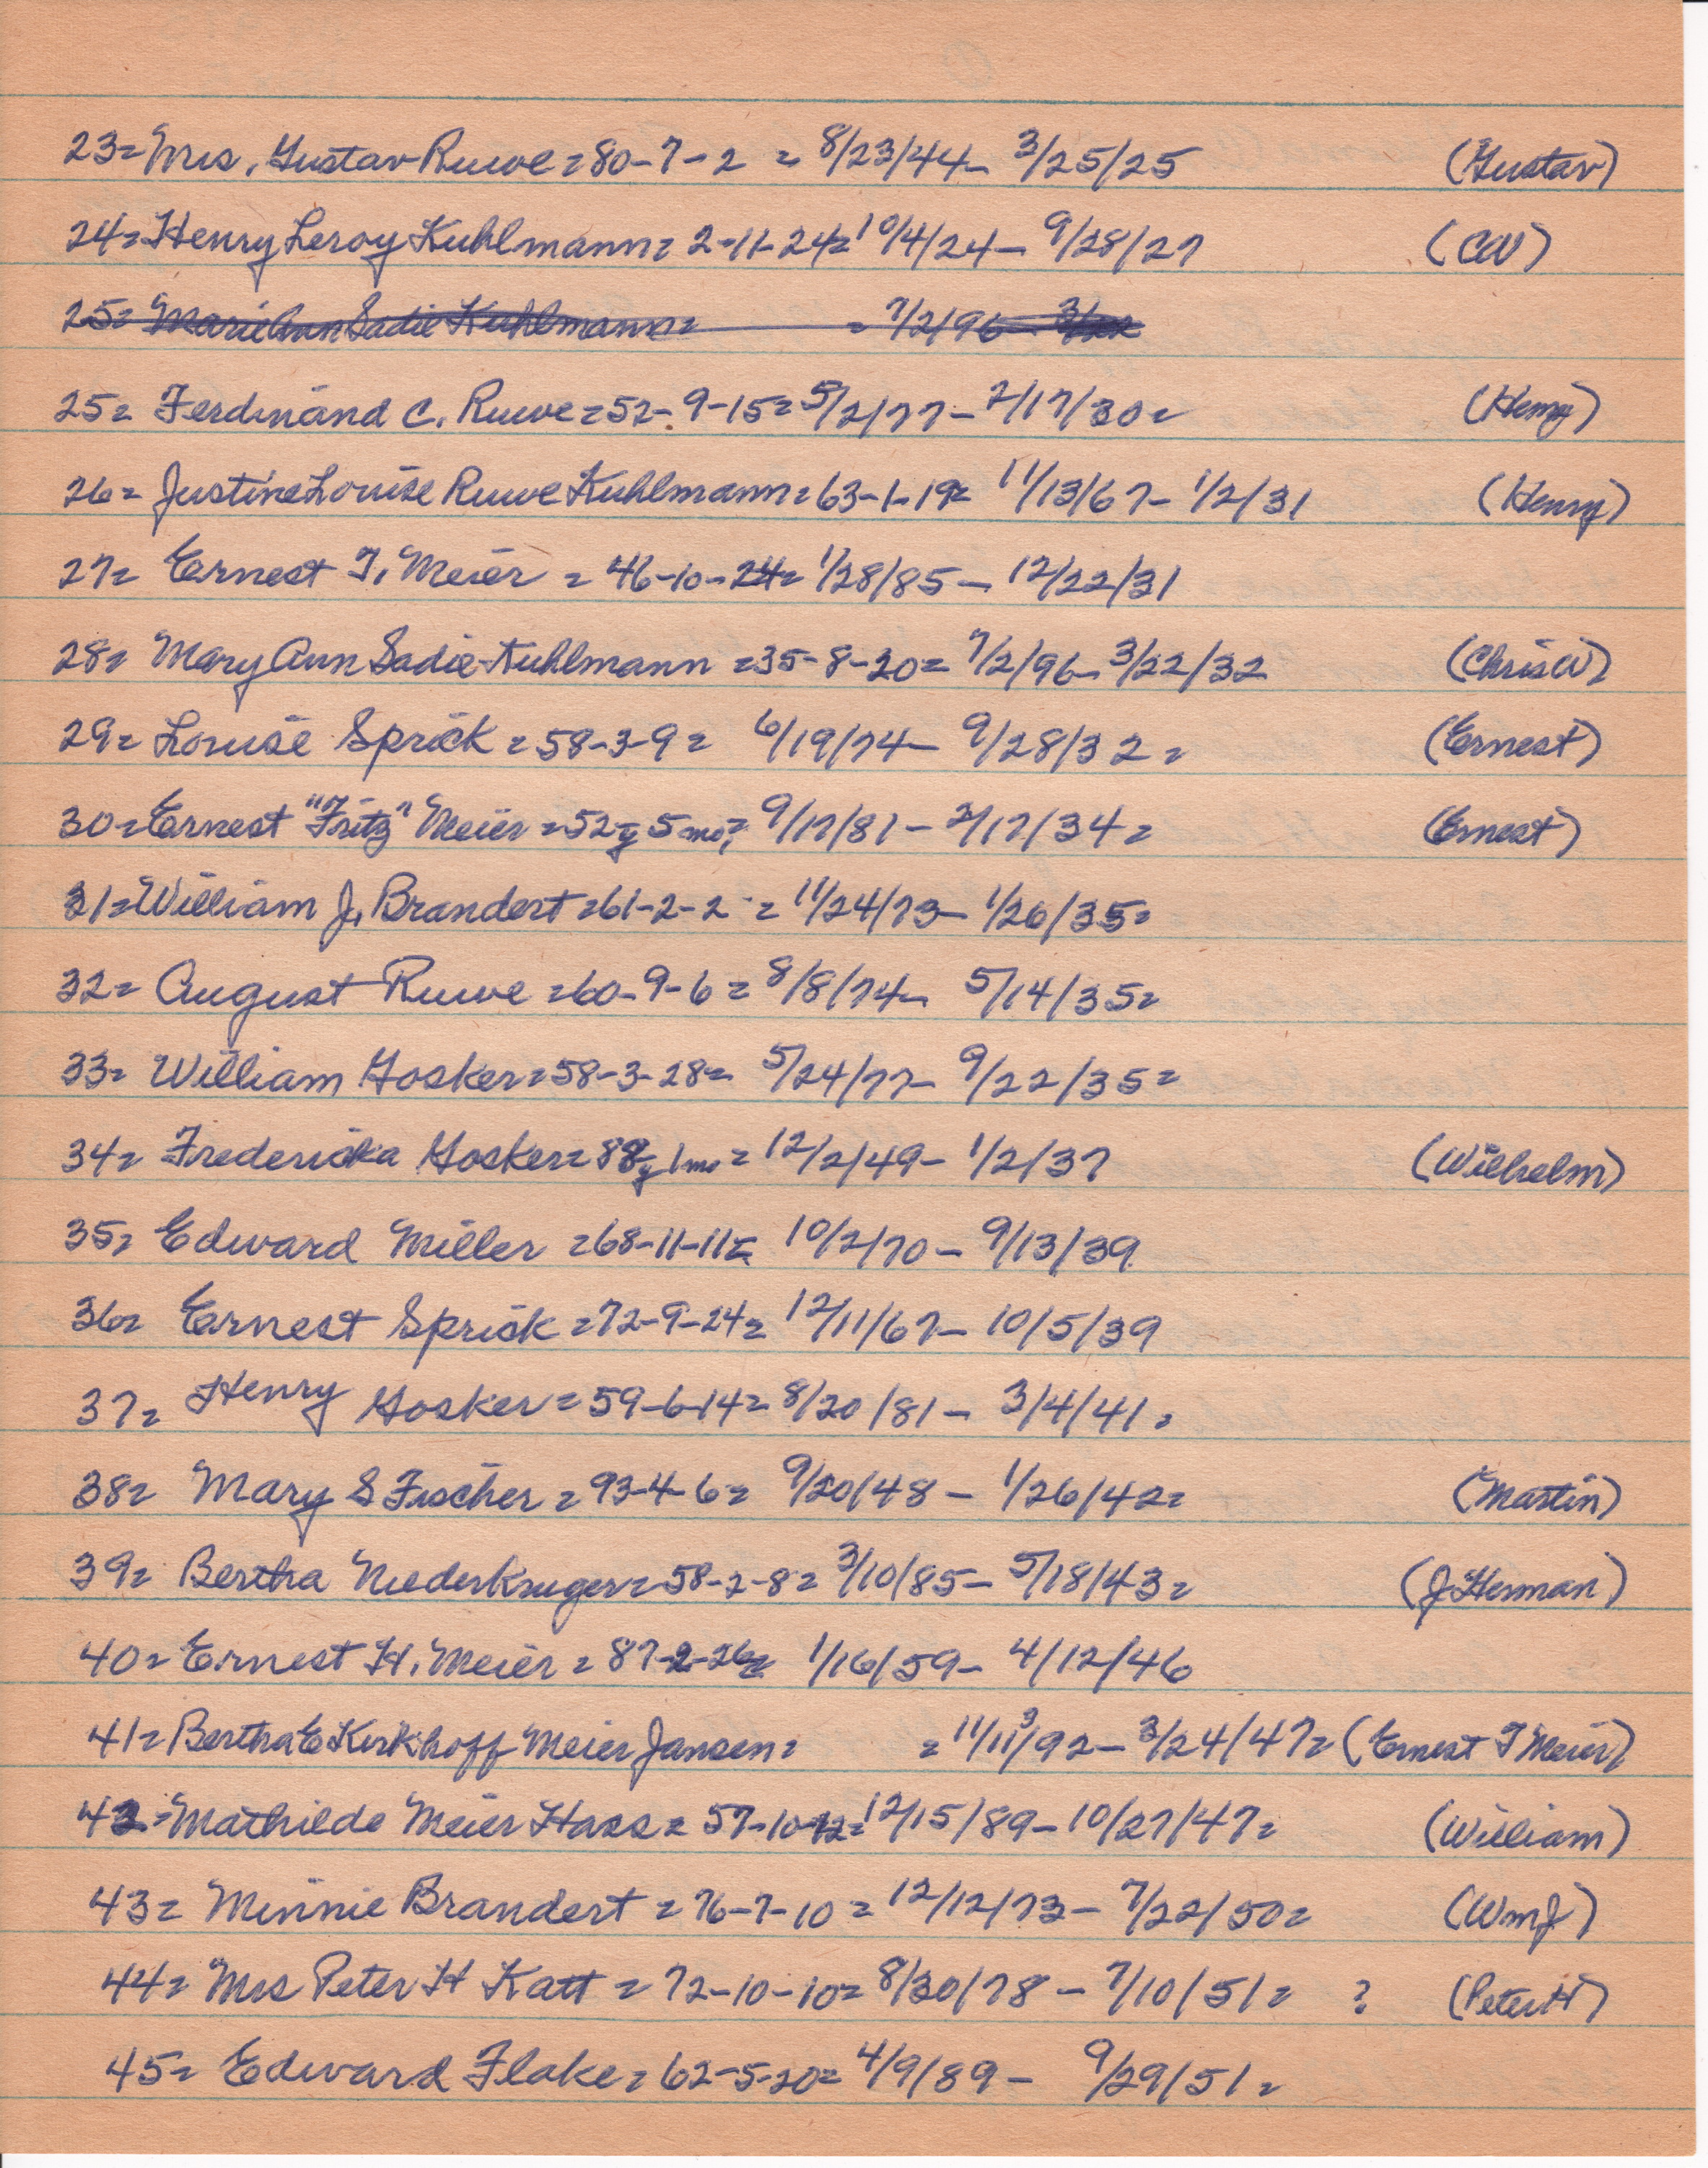 23= Mrs. Gustav Ruwe = 80-7-2 = 8/23/44- 3/25/25 (Gustav)
24= Henry Leroy Kuhlmann = 2-11-24= 10/4/24- 9/28/27 (CW)
25= Marie Ann Sadie Kuhlmann = = 7/2/96- 3/22
25= Ferdinand C. Ruwe = 52-9-15= 5/2/77- 2/17/30= (Henry)
26= Justine Louise Ruwe Kuhlmann = 63-1-19= 11/13/67- 1/2/31 (Henry)
27= Ernest F. Meier = 46-10-24= 1/28/85- 12/22/31
28= Mary Ann Sadie Kuhlmann = 35-8-20= 7/2/96- 3/22/32 (Chris W)
29= Louise Sprick = 58-3-9= 6/19/74- 9/28/32= (Ernest)
30= Ernest "Fritz" Meier = 52y 5mo,= 9/17/81- 2/17/34= (Ernest)
31= William J. Brandert = 61-2-2 = 11/24/73- 1/26/35=
32= August Ruwe = 60-9-6= 8/8/74- 5/14/35=
33= William Gosker = 58-3-28= 5/24/77- 9/22/35=
34= Fredericka Gosker = 88y 1mo = 12/2/49- 1/2/37 (Wilhelm)
35= Edward Miller = 68-11-11= 10/2/70- 9/13/39
36= Ernest Sprick = 72-9-24= 12/11/67- 10/5/39
37= Henry Gosker = 59-6-14= 8/20/81- 3/4/41=
38= Mary S Fischer = 93-4-6= 9/20/48- 1/26/42= (Martin)
39= Bertha Niederkruger = 58-2-8= 3/10/85- 5/18/43= (J Herman)
40= Ernest H. Meier = 87-2-26= 1/16/59- 4/12/46
41= Bertha E Kirkhoff Meier Jansen = = 11/11/92- 3/24/47= (Ernest F Meier)
42= Mathilde Meier Hass = 57-10-12= 12/15/89- 10/27/47= (William)
43= Minnie Brandert = 76-7-10= 12/12/73- 7/22/50= (Wm J)
44= Mrs Peter H Katt = 72-10-10= 8/30/78- 7/10/51= ? (Peter H)
45= Edward Flake = 62-5-20= 4/9/89- 9/29/51=